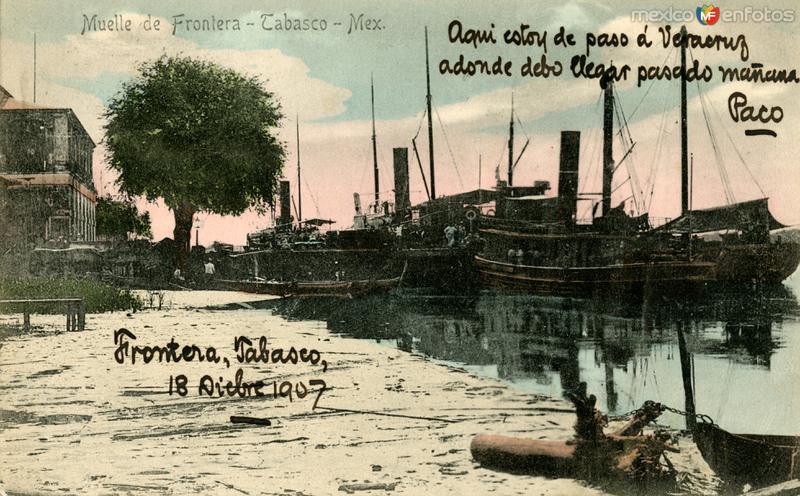 Muelle de Frontera - Tabasco - Mex.
mexico enfotos
Aqui estoy de paso á Veracruz
adonde debo llegar pasado mañana
Paco
Frontera, Tabasco,
18 Dicbre 1907